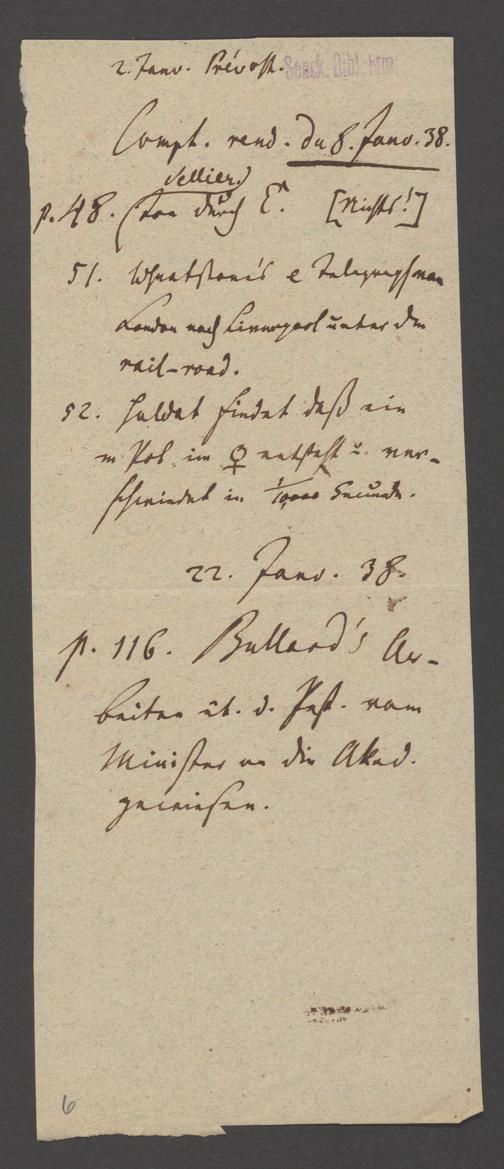 2. Janv. Prévost.
Senck. Bibl.
Compt. rend. du 8. Janv. 38.
Sellier)
p. 48. (Ton durch E. [Nichts!]
51. Wheatstone's e Telegraph von
London nach Liverpool unter dem
rail-road.
52. Haldat findet daß ein
m Pol im ♀ entsteht u. ver-
schwindet in 1/10,000 Secunde.
22. Janv. 38.
p. 116. Bullard's Ar-
beiten üb. d. Pest. vom
Minister an die Akad.
gewiesen.
6